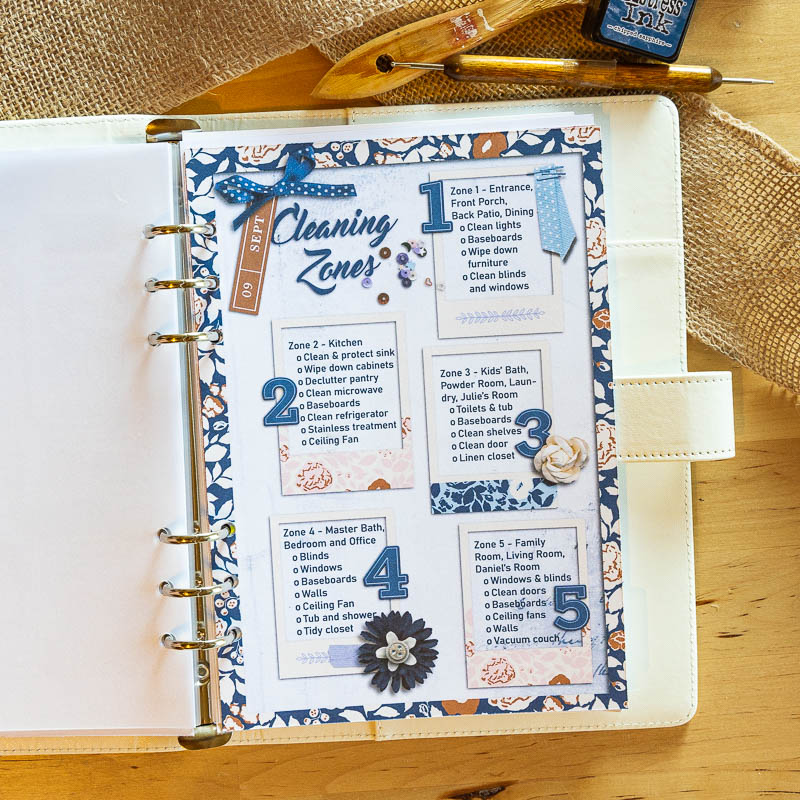 stress
Ink
chipped sapphire
Cleaning
Zones
09 SEPT
1
Zone 1 - Entrance,
Front Porch,
Back Patio, Dining
o Clean lights
o Baseboards
o Wipe down
furniture
o Clean blinds
and windows
Zone 2 - Kitchen
o Clean & protect sink
o Wipe down cabinets
o Declutter pantry
o Clean microwave
o Baseboards
o Clean refrigerator
o Stainless treatment
o Ceiling Fan
2
Zone 3 - Kids' Bath,
Powder Room, Laun-
dry, Julie's Room
o Toilets & tub
o Baseboards
o Clean shelves
o Clean door
o Linen closet
3
Zone 4 - Master Bath,
Bedroom and Office
o Blinds
o Windows
o Baseboards
o Walls
o Ceiling Fan
o Tub and shower
o Tidy closet
4
Zone 5 - Family
Room, Living Room,
Daniel's Room
o Windows & blinds
o Clean doors
o Baseboards
o Ceiling fans
o Walls
o Vacuum couch
5